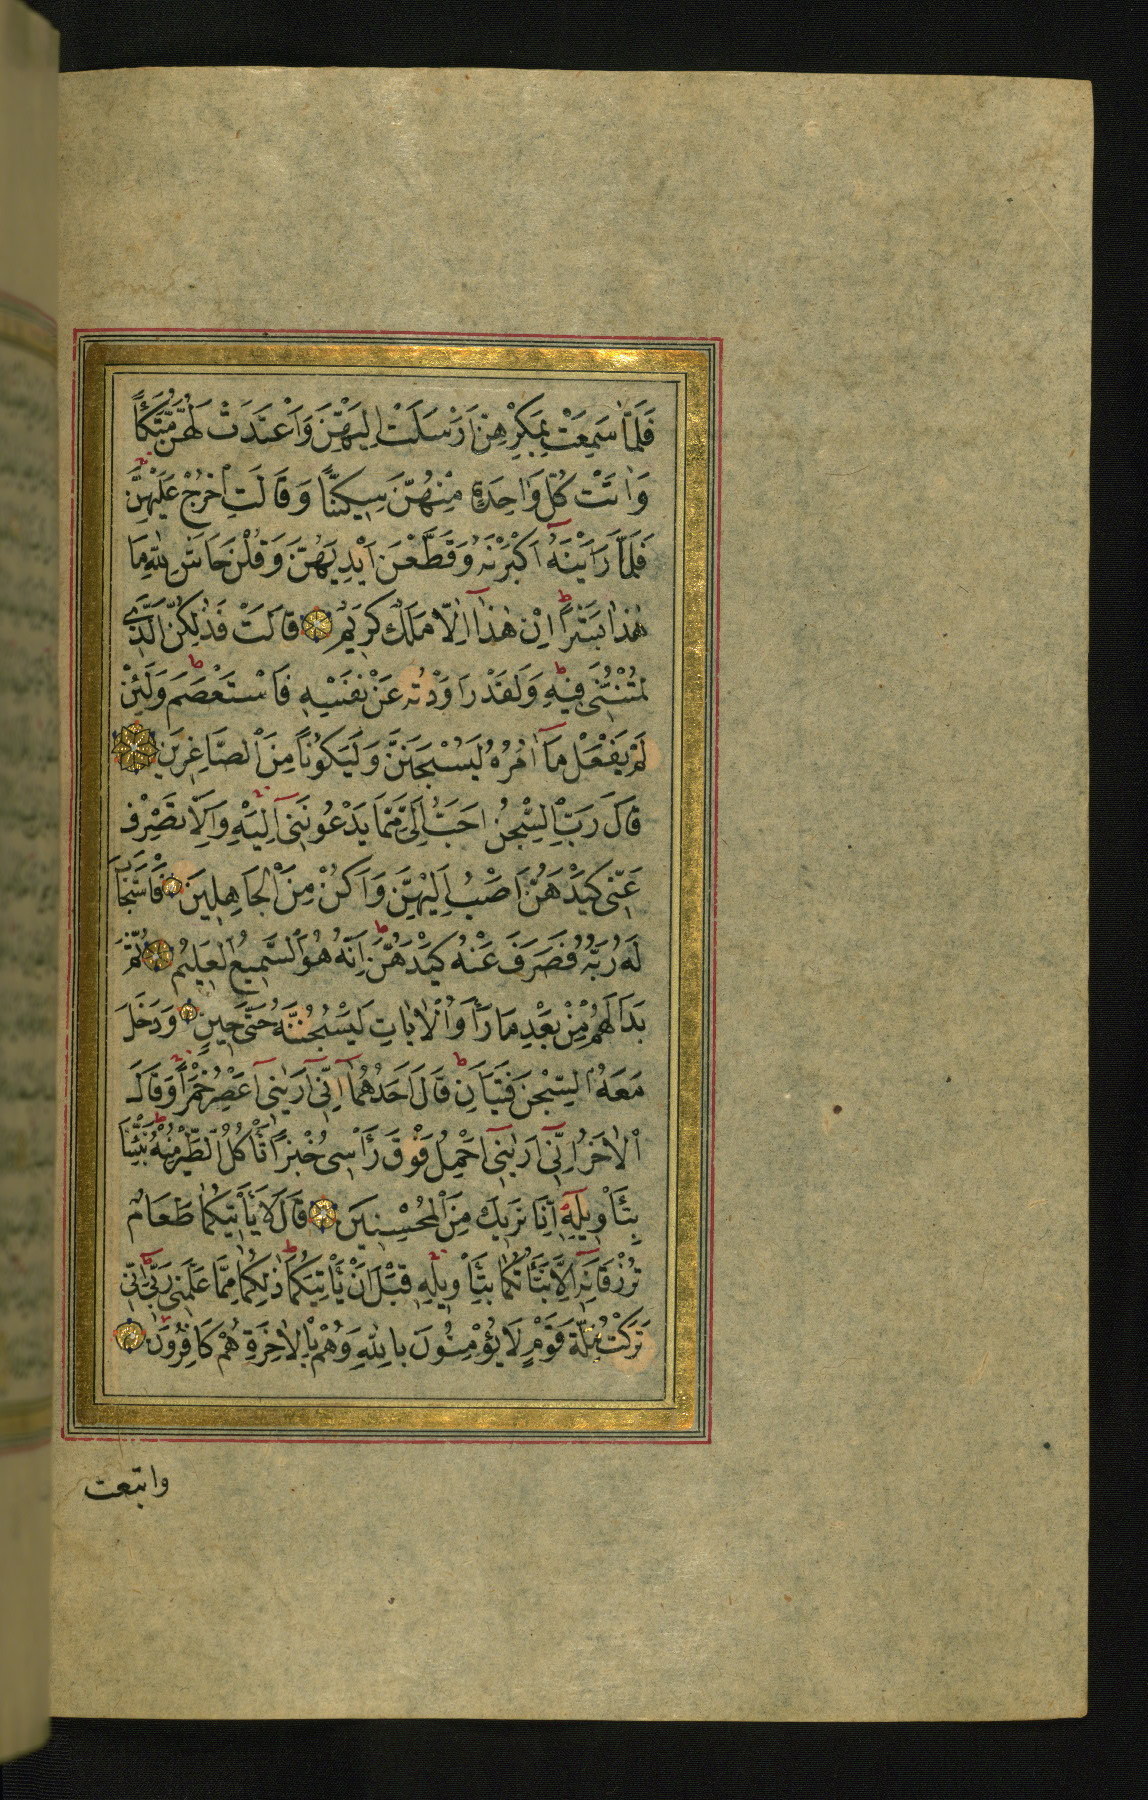 فَلَمَّا سَمِعَتْ بِمَكْرِهِنَّ اَرْسَلَتْ اِلَيْهِنَّ وَاَعْتَدَتْ لَهُنَّ مُتَّكَأً
وَاٰتَتْ كُلَّ وَاحِدَةٍ مِنْهُنَّ سِكِّينًا وَقَالَتِ اخْرُجْ عَلَيْهِنَّ
فَلَمَّا رَاَيْنَهُٓ اَكْبَرْنَهُ وَقَطَّعْنَ اَيْدِيَهُنَّ وَقُلْنَ حَاشَ لِلّٰهِ مَا
هٰذَا بَشَرًاۜ اِنْ هٰذَٓا اِلَّا مَلَكٌ كَرِيمٌ قَالَتْ فَذٰلِكُنَّ الَّذِي
لُمْتُنَّنِي فِيهِۜ وَلَقَدْ رَاوَدْتُهُ عَنْ نَفْسِهِ فَاسْتَعْصَمَۜ وَلَئِنْ
لَمْ يَفْعَلْ مَٓا اٰمُرُهُ لَيُسْجَنَنَّ وَلَيَكُونًا مِنَ الصَّاغِرِينَ
قَالَ رَبِّ السِّجْنُ اَحَبُّ اِلَيَّ مِمَّا يَدْعُونَنِٓي اِلَيْهِ وَاِلَّا تَصْرِفْ
عَنِّي كَيْدَهُنَّ اَصْبُ اِلَيْهِنَّ وَاَكُنْ مِنَ الْجَاهِلِينَ فَاسْتَجَابَ
لَهُ رَبُّهُ فَصَرَفَ عَنْهُ كَيْدَهُنَّۜ اِنَّهُ هُوَ السَّمِيعُ الْعَلِيمُ ثُمَّ
بَدَا لَهُمْ مِنْ بَعْدِ مَا رَاَوُا الْاٰيَاتِ لَيَسْجُنُنَّهُ حَتّٰى حِينٍ وَدَخَلَ
مَعَهُ السِّجْنَ فَتَيَانِۜ قَالَ اَحَدُهُمَٓا اِنِّٓي اَرٰينِٓي اَعْصِرُ خَمْرًا وَقَالَ
الْاٰخَرُ اِنِّٓي اَرٰينِٓي اَحْمِلُ فَوْقَ رَأْسِي خُبْزًا تَأْكُلُ الطَّيْرُ مِنْهُۜ نَبِّئْنَا
بِتَأْوِيلِهِ اِنَّا نَرٰيكَ مِنَ الْمُحْسِنِينَ قَالَ لَا يَأْتِيكُمَا طَعَامٌ
تُرْزَقَانِهِٓ اِلَّا نَبَّأْتُكُمَا بِتَأْوِيلِهِ قَبْلَ اَنْ يَأْتِيَكُمَاۜ ذٰلِكُمَا مِمَّا عَلَّمَنِي رَبِّيۜ اِنِّي
تَرَكْتُ مِلَّةَ قَوْمٍ لَا يُؤْمِنُونَ بِاللّٰهِ وَهُمْ بِالْاٰخِرَةِ هُمْ كَافِرُونَ
واتبعت